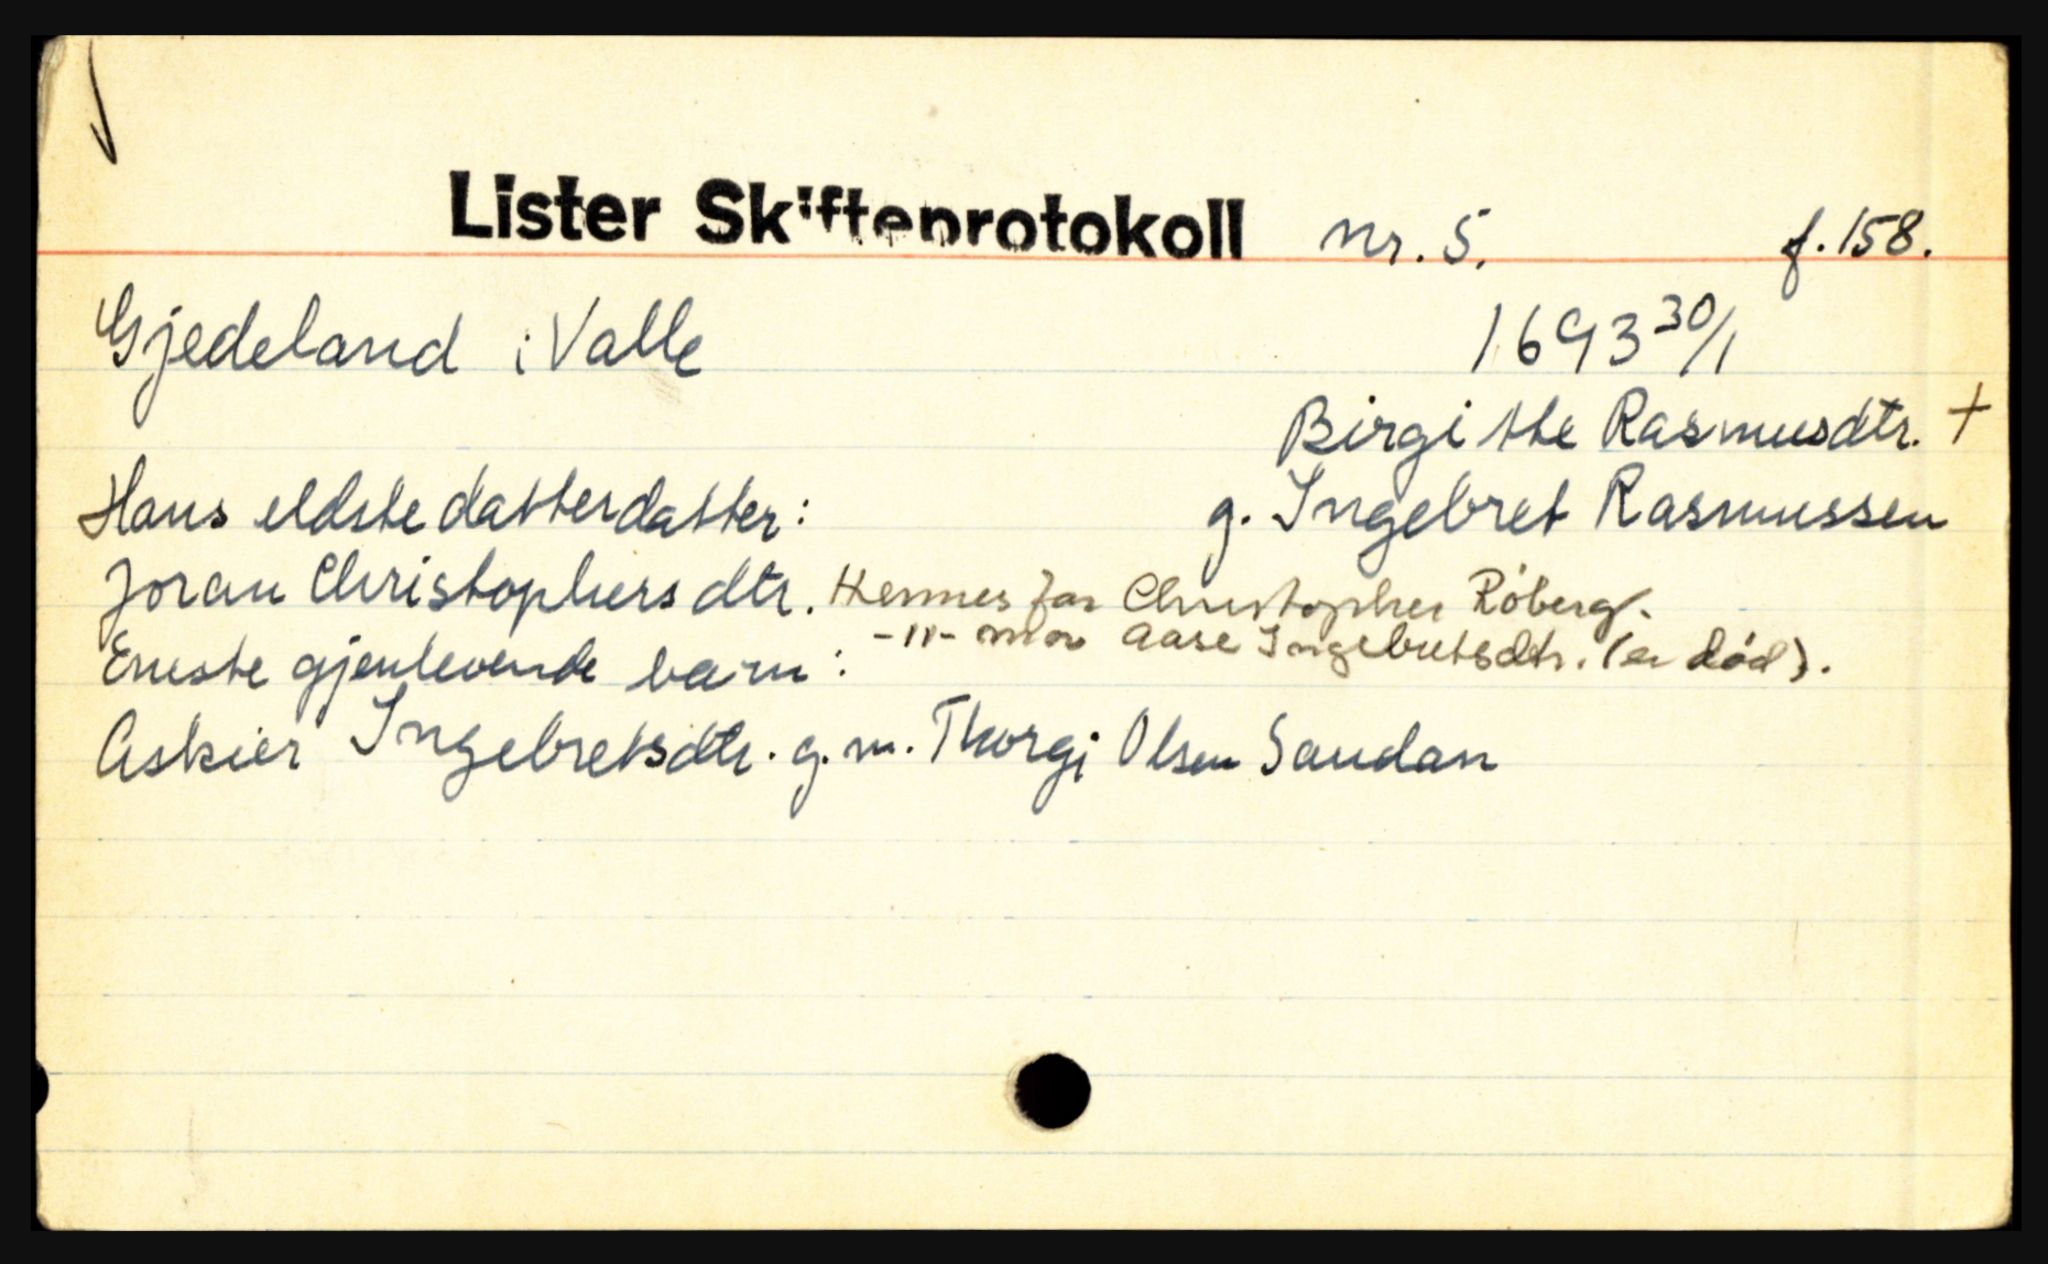 Lister Skifteprotokoll nr. 5. f. 158.
Gjedeland i Valle 1693 30/1
Birgithe Rasmusdtr. +
Hans eldste datterdatter: g. Ingebret Rasmussen
Joran Christophersdtr. Hennes far Christopher Röberg.
-"- mor Aase Ingebretsdtr. (er död).
Eneste gjenlevende barn:
Askier Ingebretsdtr. g. m. Thorgi Olsen Saudan